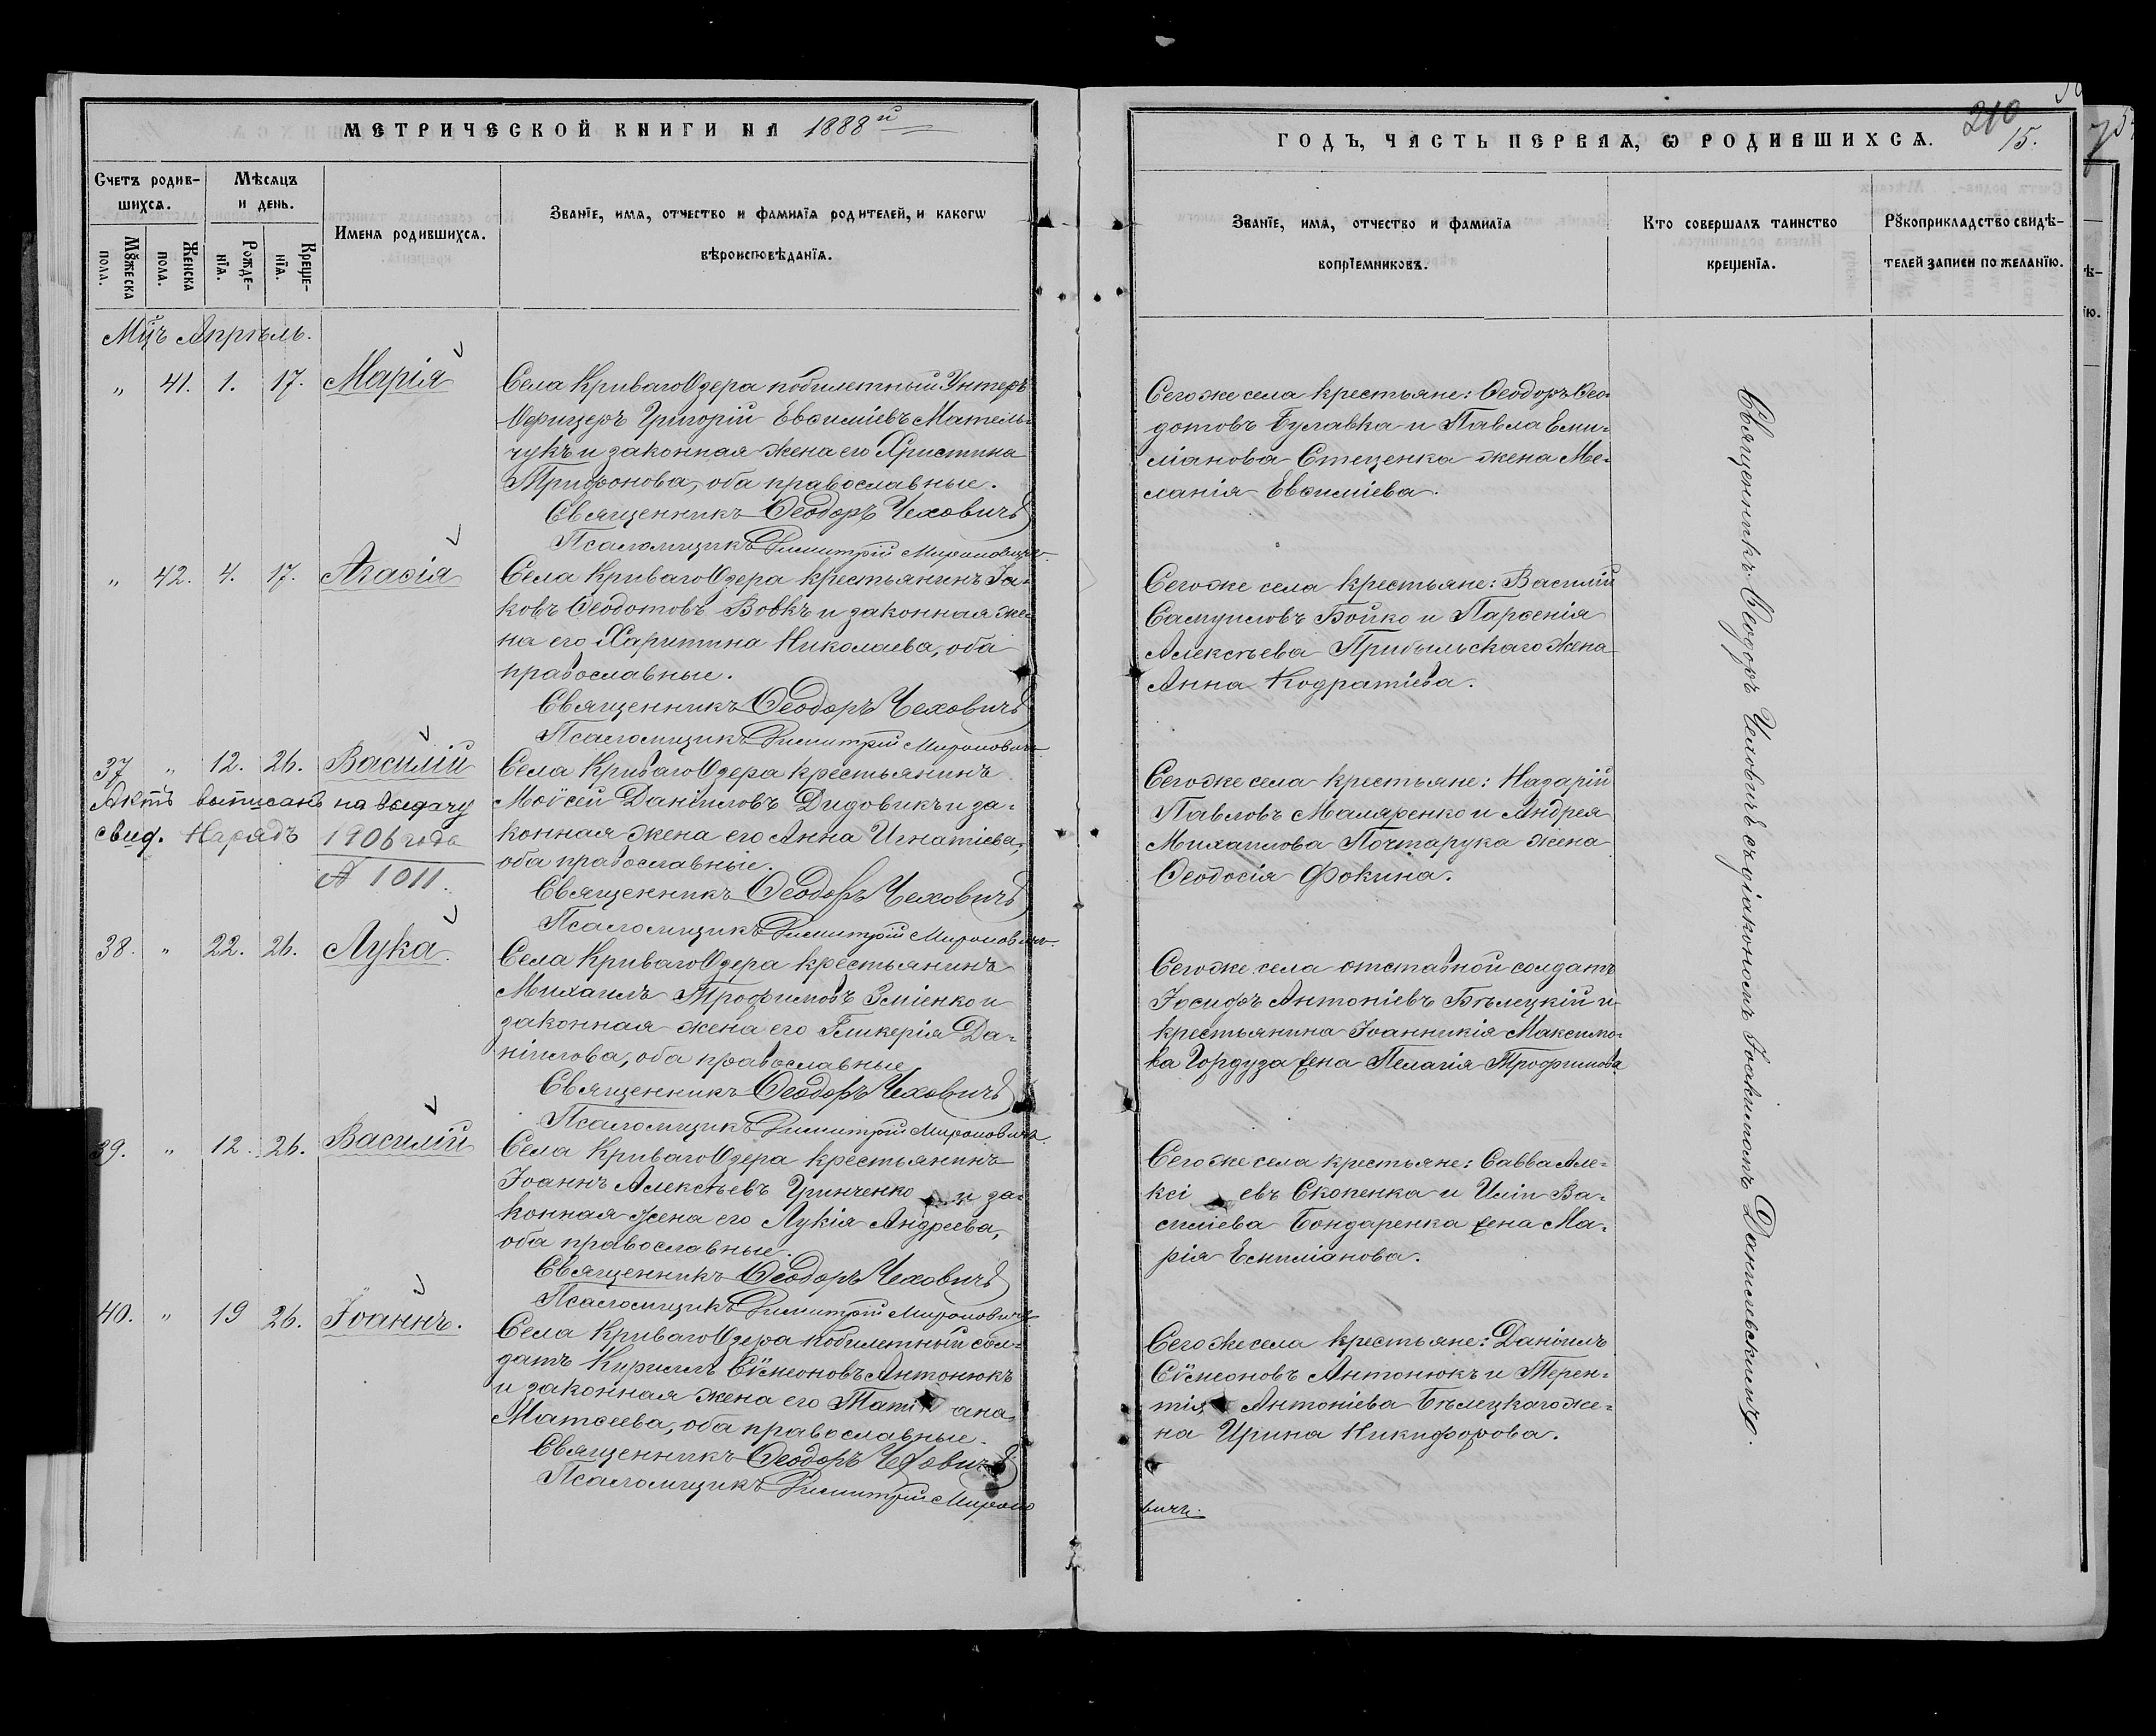 МЕТРИЧЕСКОЙ КНИГИ НА 1888й
Счетъ родив-
шихсѧ.
Мѣсѧцъ
и день.
Мꙋжеска
пола.
Женска
пола.
Рожде-
нїѧ.
Креще-
нїѧ.
Имена родившихсѧ.
Званїе, имѧ, отчество и фамилїѧ родителей, и какогѡ
вѣроисповѣданїѧ.
Мцъ Апрѣль.
" 41. 1. 17. Марія
Села Криваго Озера побилетный Унтеръ
Офицеръ Григорій Евѳиміевъ Мательчукъ
и законная жена его Христина
Трифонова, оба православные.
Священникъ Ѳеодоръ Чеховичъ
Псаломщикъ Димитрій Мироновичъ
" 42. 4. 17. Агаѳія
Села Криваго Озера крестьянинъ Іа-
ковъ Ѳеодотовъ Вовкъ и законная же-
на его Харитина Николаева, оба
православные.
Священникъ Ѳеодоръ Чеховичъ
Псаломщикъ Димитрій Мироновичъ
37 " 12. 26. Василій
Актъ выписанъ на выдачу
свид. Нарядъ 1906 года
№ 1011.
Села Криваго Озера крестьянинъ
Моѵсей Даніиловъ Дидовикъ и за-
конная жена его Анна Игнатіева,
оба православніе.
Священникъ Ѳеодоръ Чеховичъ
Псаломщикъ Димитрій Мироновичъ
38. " 22. 26. Лука.
Села Криваго Озера крестьянинъ
Михаилъ Трофимовъ Зміенко и
законная жена его Гликерія Да-
ніилова, оба православные
Священникъ Ѳеодоръ Чеховичъ
Псаломщикъ Димитрій Мироновичъ
39. " 12. 26. Василій
Села Криваго Озера крестьянинъ
Іоаннъ Алексѣевъ Гринченко и за-
конная жена его Лукія Андреева,
оба православные.
Священникъ Ѳеодоръ Чеховичъ
Псаломщикъ Димитрій Мироновичъ
40. " 19 26. Іоаннъ.
Села Криваго Озера побилетный сол-
датъ Кириллъ Сѵмеоновъ Антонюкъ
и законная жена его Тати ана
Матѳеева, оба православные.
Священникъ Ѳеодоръ Чеховичъ
Псаломщикъ Димитрій Мироно
ГОДЪ, ЧАСТЬ ПЕРВАѦ, Ѡ РОДИВШИХСѦ.
210
15.
Званїе, имѧ, отчество и фамилїѧ
воспрїемниковъ.
Кто совершалъ таинство
крещенїѧ.
Рꙋкоприкладство свидѣ-
телей записи по желанїю.
Сегоже села крестьяне: Ѳеодоръ Ѳео-
дотовъ Булавка и Павла Еми-
ліанова Стеценка жена Ме-
ланія Евѳиміева.
Сегоже села крестьяне: Василій
Самуиловъ Бойко и Парѳенія
Алексѣева Прибыльскаго жена
Анна Кодратіева.
Сегоже села крестьяне: Назарій
Павловъ Маляренко и Андрея
Михаилова Почтарука жена
Ѳеодосія Фокина.
Сегоже села отставной солдатъ
Іосифъ Антоніевъ Бѣлецкій и
крестьянина Іоанникія Максимо-
ва Гордуза жена Пелагія Трофимова
Сегоже села крестьяне: Савва Але-
ксі евъ Скопенка и Иліи Ва-
силіева Бондаренка жена Ма-
рія Емиліанова.
Сегоже села крестьяне: Даніилъ
Сѵмеоновъ Антонюкъ и Терен-
тія Антоніева Бѣлецкаго же-
на Ирина Никифорова.
вичъ.
Священникъ Ѳеодоръ Чеховичъ съ діакономъ Іоакимомъ Данилевскимъ.